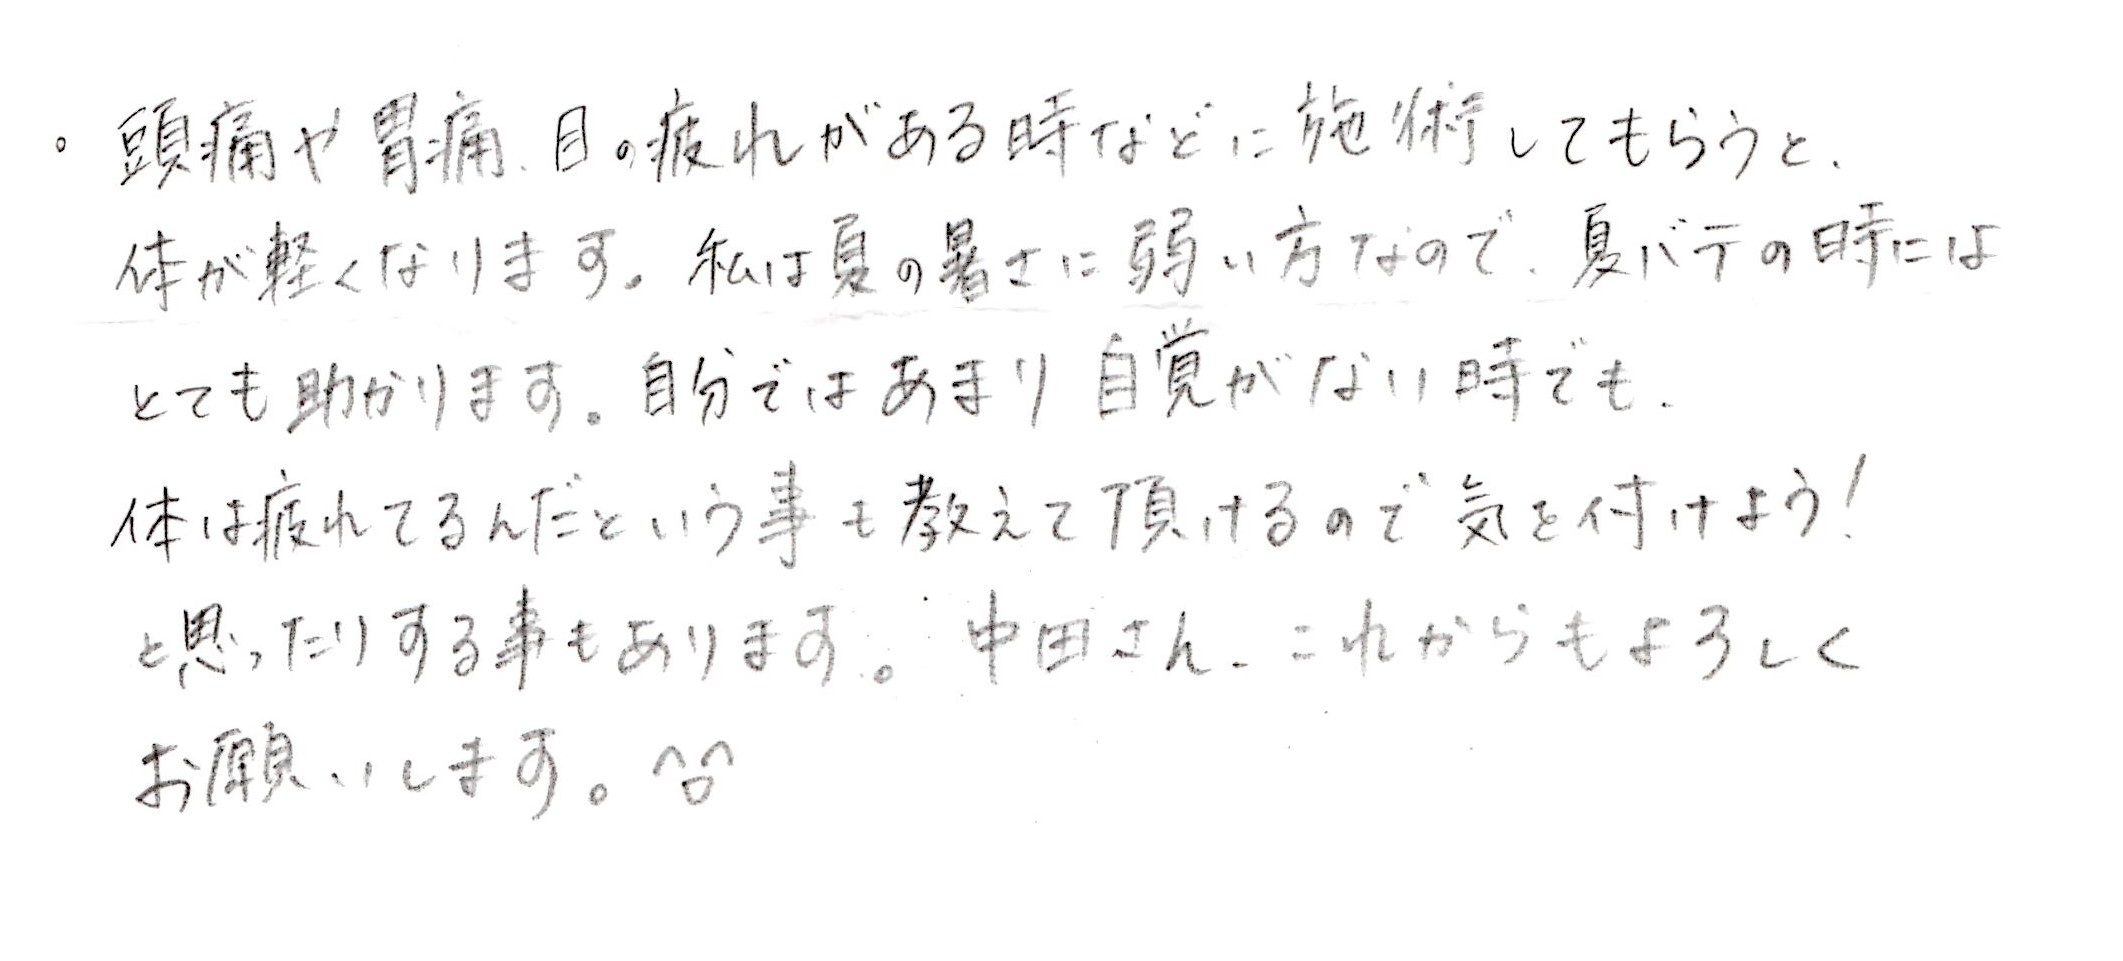 。頭痛や胃痛、目の疲れがある時などに施術してもらうと、
体が軽くなります。私は夏の暑さに弱い方なので、夏バテの時には
とても助かります。自分ではあまり自覚がない時でも、
体は疲れてるんだという事も教えて頂けるので気を付けよう!
と思ったりする事もあります。中田さん、これからもよろしく
お願いします。^o^